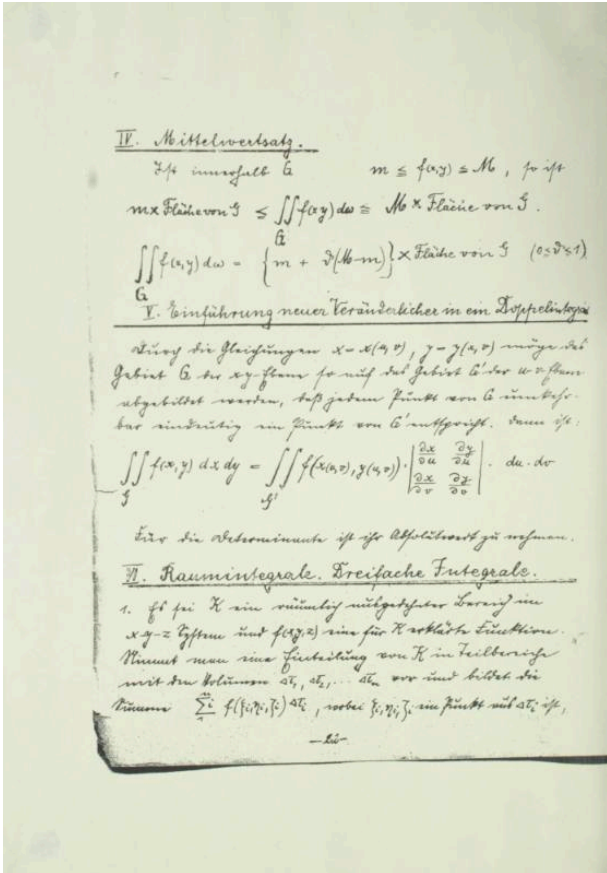 IV. Mittelwertsatz.
Ist innerhalb G m ≦ f(x,y) ≦ M, so ist
m × Fläche von G ≦ ∬ f(x,y) dω ≦ M × Fläche von G.
G
∬ f(x,y) dω = {m + ϑ(M-m)} × Fläche von G (0≦ϑ≦1)
G
V. Einführung neuer Veränderlicher in ein Doppelintegral
Durch die Gleichungen x = x(u,v), y = y(u,v) möge das
Gebiet G der xy-Ebene so auf das Gebiet G' der u-v-Ebene
abgebildet werden, daß jedem Punkt von G umkehr-
bar eindeutig ein Punkt von G' entspricht. Dann ist:
∬ f(x,y) dx dy = ∬ f(x(u,v), y(u,v)) · | ∂x/∂u ∂y/∂u | · du · dv
G G' | ∂x/∂v ∂y/∂v |
Für die Determinante ist ihr Absolutwert zu nehmen.
VI. Raumintegrale. Dreifache Integrale.
1. Es sei K ein räumlich ausgedehnter Bereich im
x-y-z System und f(x,y,z) eine für K erklärte Funktion.
Nimmt man eine Einteilung von K in Teilbereiche
mit den Volumen Δτ₁, Δτ₂, ... Δτₙ vor und bildet die
Summe Σ f(ξᵢ,ηᵢ,ζᵢ) Δτᵢ, wobei ξᵢ,ηᵢ,ζᵢ ein Punkt aus Δτᵢ ist,